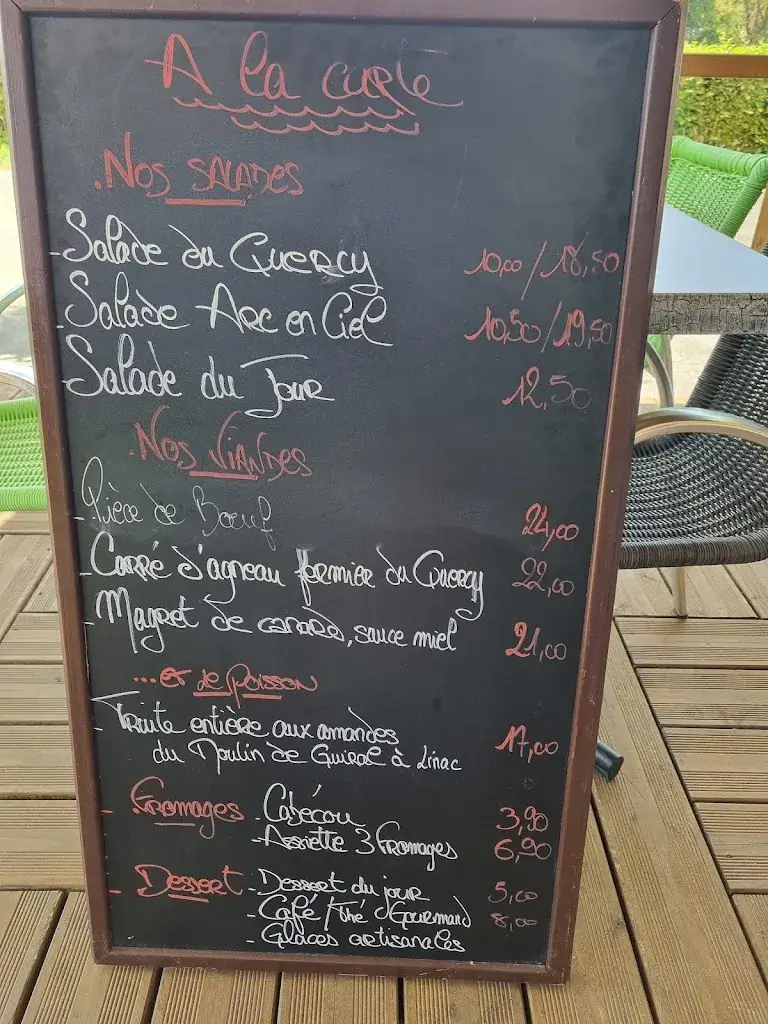 A la carte
.Nos SALADES
- Salade du Quercy 10,00 / 18,50
- Salade Arc en Ciel 10,50 / 19,50
- Salade du Jour 12,50
.Nos Viandes
- Pièce de Boeuf 24,00
- Carré d'agneau fermier du Quercy 22,00
- Magret de canard, sauce miel 21,00
...et le poisson
- Truite entière aux amandes
du Moulin de Guiral à Linac 17,00
- Fromages - Cabécou 3,90
- Assiette 3 Fromages 6,90
- Dessert - Dessert du jour 5,00
- Café / thé Gourmand 8,00
- Glaces artisanales